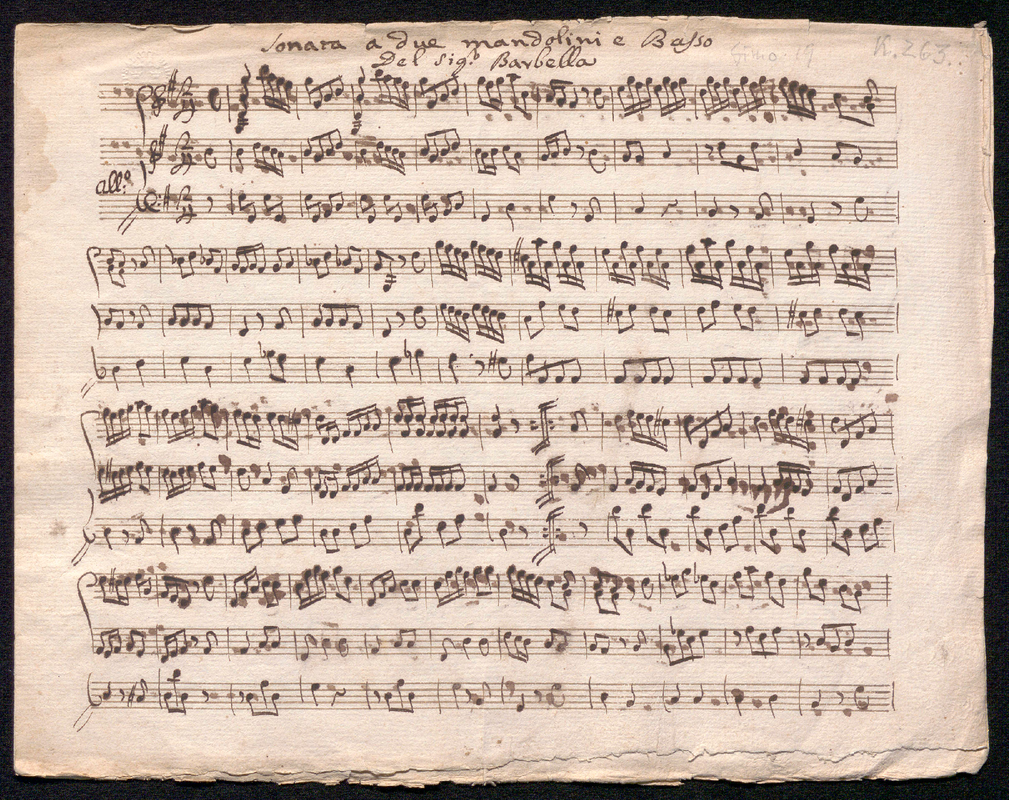 Sonata a due mandolini e Basso
Del Sigr. Barbella
Gimo. 19
R. 263.
allo.